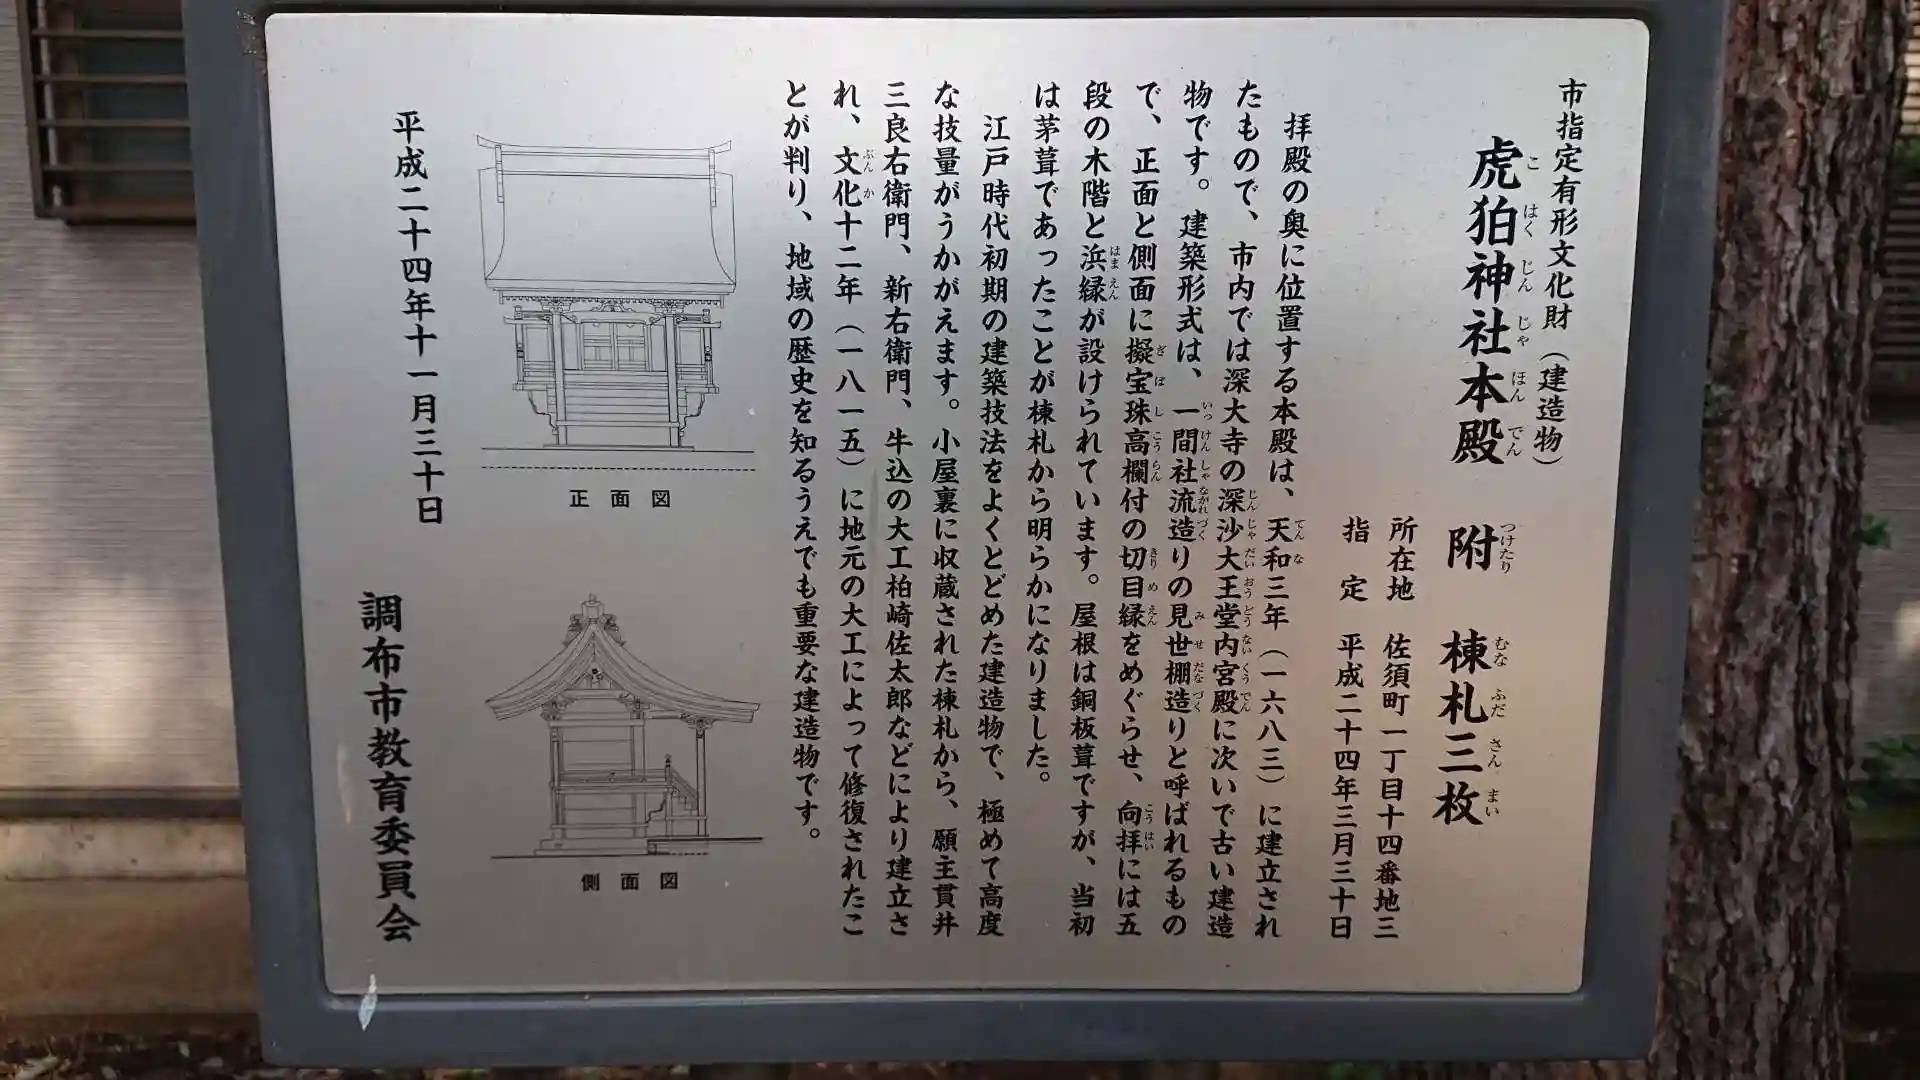 市指定有形文化財（建造物）
虎狛神社本殿　附　棟札三枚
こはくじんじゃほんでん　つけたり　むなふださんまい
所在地　佐須町一丁目十四番地三
指　定　平成二十四年三月三十日
拝殿の奥に位置する本殿は、天和三年（一六八三）に建立され
てんな
たもので、市内では深大寺の深沙大王堂内宮殿に次いで古い建造
じんじゃだいおうどうないくうでん
物です。建築形式は、一間社流造りの見世棚造りと呼ばれるもの
いっけんしゃながれづく　みせだなづく
で、正面と側面に擬宝珠高欄付の切目縁をめぐらせ、向拝には五
ぎぼしこうらん　きりめえん　こうはい
段の木階と浜縁が設けられています。屋根は銅板葺ですが、当初
はまえん
は茅葺であったことが棟札から明らかになりました。
江戸時代初期の建築技法をよくとどめた建造物で、極めて高度
な技量がうかがえます。小屋裏に収蔵された棟札から、願主貫井
三良右衛門、新右衛門、牛込の大工柏崎佐太郎などにより建立さ
れ、文化十二年（一八一五）に地元の大工によって修復されたこ
ぶんか
とが判り、地域の歴史を知るうえでも重要な建造物です。
正面図
側面図
平成二十四年十一月三十日
調布市教育委員会